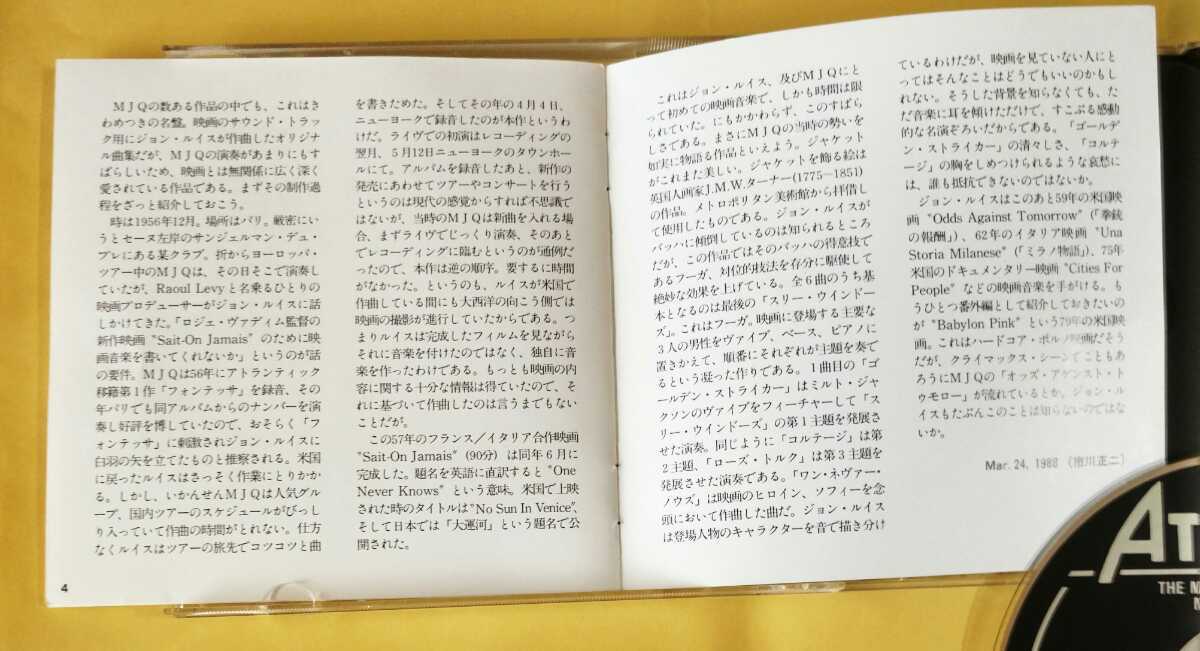 MJQの数ある作品の中でも、これはき
わめつきの名盤。映画のサウンド・トラッ
ク用にジョン・ルイスが作曲したオリジナ
ル曲集だが、MJQの演奏があまりにもす
ばらしいため、映画とは無関係に広く深く
愛されている作品である。まずその制作過
程をざっと紹介しておこう。
時は1956年12月。場所はパリ。厳密にい
うとセーヌ左岸のサンジェルマン・デュ・
プレにある某クラブ。折からヨーロッパ・
ツアー中のMJQは、その日そこで演奏し
ていたが、Raoul Levyと名乗るひとりの
映画プロデューサーがジョン・ルイスに話
しかけてきた。「ロジェ・ヴァディム監督の
新作映画"Sait-On Jamais"のために映
画音楽を書いてくれないか」というのが話
の要件。MJQは56年にアトランティック
移籍第1作「フォンテッサ」を録音、その
年パリでも同アルバムからのナンバーを演
奏し好評を博していたので、おそらく「フ
ォンテッサ」に刺激されジョン・ルイスに
白羽の矢を立てたものと推察される。米国
に戻ったルイスはさっそく作業にとりかか
る。しかし、いかんせんMJQは人気グル
ープ、国内ツアーのスケジュールがびっし
り入っていて作曲の時間がとれない。仕方
なくルイスはツアーの旅先でコツコツと曲
4
を書きためた。そしてその年の4月4日、
ニューヨークで録音したのが本作というわ
けだ。ライヴでの初演はレコーディングの
翌月、5月12日ニューヨークのタウンホー
ルにて。アルバムを録音したあと、新作の
発売にあわせてツアーやコンサートを行う
というのは現代の感覚からすれば不思議で
はないが、当時のMJQは新曲を入れる場
合、まずライヴでじっくり演奏、そのあと
でレコーディングに臨むというのが通例だ
ったので、本作は逆の順序。要するに時間
がなかった。というのも、ルイスが米国で
作曲している間にも大西洋の向こう側では
映画の撮影が進行していたからである。つ
まりルイスは完成したフィルムを見ながら
それに音楽を付けたのではなく、独自に音
楽を作ったわけである。もっとも映画の内
容に関する十分な情報は得ていたので、そ
れに基づいて作曲したのは言うまでもない
ことだが。
この57年のフランス/イタリア合作映画
"Sait-On Jamais"(90分)は同年6月に
完成した。題名を英語に直訳すると"One
Never Knows"という意味。米国で上映
された時のタイトルは"No Sun In Venice"、
そして日本では「大運河」という題名で公
開された。
これはジョン・ルイス、及びMJQにと
って初めての映画音楽で、しかも時間は限
られていた。にもかかわらず、このすばら
しさである。まさにMJQの当時の勢いを
如実に物語る作品といえよう。ジャケット
がこれまた美しい。ジャケットを飾る絵は
英国人画家J.M.W.ターナー(1775―1851)
の作品。メトロポリタン美術館から拝借し
て使用したものである。ジョン・ルイスが
バッハに傾倒しているのは知られるところ
だが、この作品ではそのバッハの得意技で
あるフーガ、対位的技法を存分に駆使して
絶妙な効果を上げている。全6曲のうち基
本となるのは最後の「スリー・ウインドー
ズ」。これはフーガ。映画に登場する主要な
3人の男性をヴァイブ、ベース、ピアノに
置きかえて、順番にそれぞれが主題を奏で
るという凝った作りである。1曲目の「ゴ
ールデン・ストライカー」はミルト・ジャ
クソンのヴァイブをフィーチャーして「ス
リー・ウインドーズ」の第1主題を発展さ
せた演奏。同じように「コルテージ」は第
2主題、「ローズ・トルク」は第3主題を
発展させた演奏である。「ワン・ネヴァー・
ノウズ」は映画のヒロイン、ソフィーを念
頭において作曲した曲だ。ジョン・ルイス
は登場人物のキャラクターを音で描き分け
ているわけだが、映画を見ていない人にと
ってはそんなことはどうでもいいのかもし
れない。そうした背景を知らなくても、た
だ音楽に耳を傾けただけで、すこぶる感動
的な名演ぞろいだからである。「ゴールデ
ン・ストライカー」の清々しさ、「コルテ
ージ」の胸をしめつけられるような哀愁に
は、誰も抵抗できないのではないか。
ジョン・ルイスはこのあと59年の米国映
画"Odds Against Tomorrow"(「拳銃
の報酬」)、62年のイタリア映画"Una
Storia Milanese"(「ミラノ物語」)、75年
米国のドキュメンタリー映画"Cities For
People"などの映画音楽を手がける。も
うひとつ番外編として紹介しておきたいの
が"Babylon Pink"という79年の米国映
画。これはハードコア・ポルノ映画だそう
だが、クライマックス・シーンでこともあ
ろうにMJQの「オッズ・アゲンスト・ト
ゥモロー」が流れているとか。ジョン・ル
イスもたぶんこのことは知らないのではな
いか。
Mar. 24, 1988(市川正二)
THE